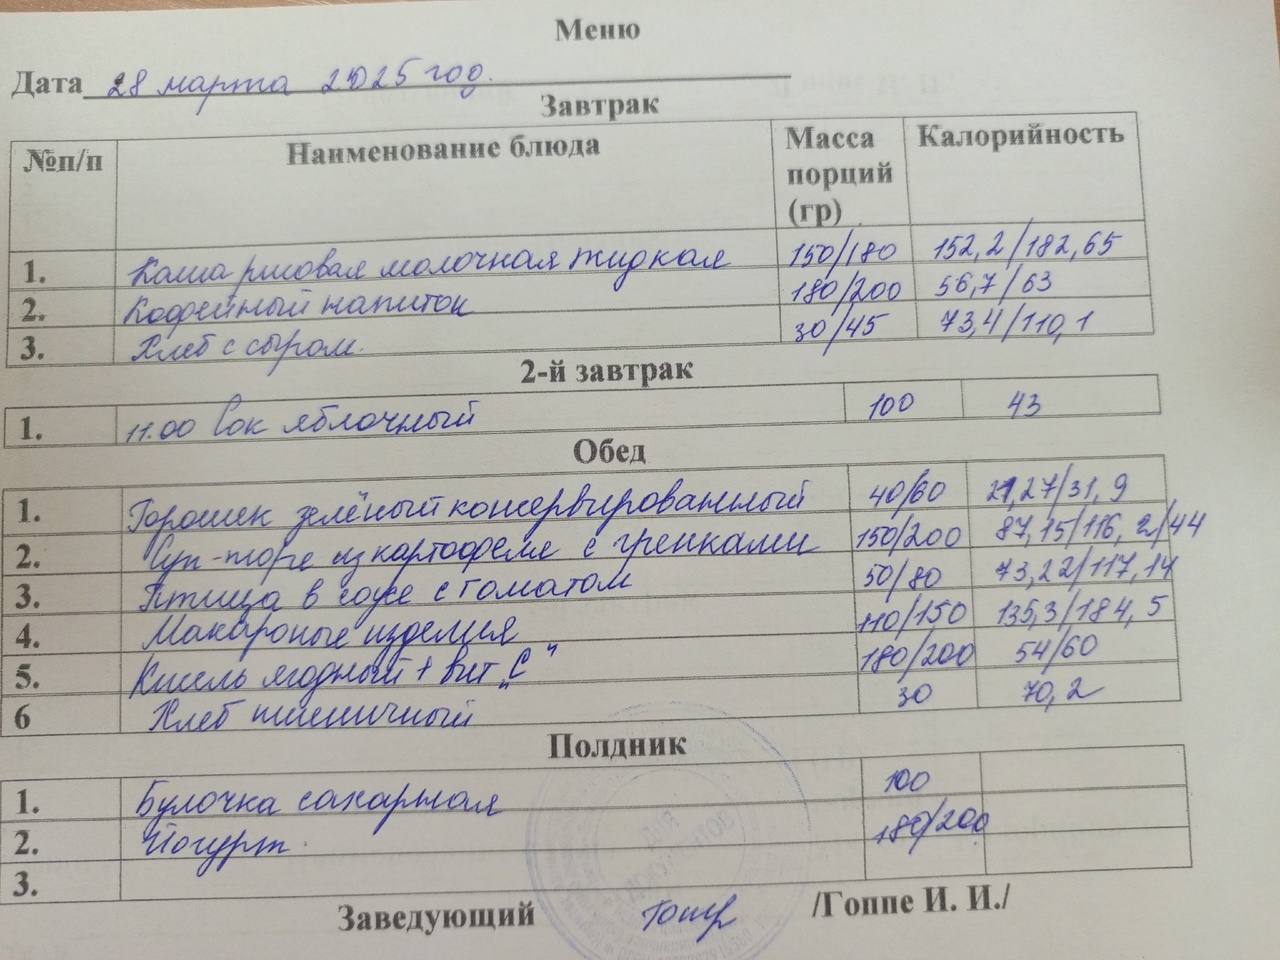 Меню
Дата 28 марта 2025 год.
Завтрак
№п/п Наименование блюда Масса порций (гр) Калорийность
1. Каша рисовая молочная жидкая 150/180 152,2/182,65
2. Кофейный напиток 180/200 56,7/63
3. Хлеб с сыром. 30/45 73,4/110,1
2-й завтрак
1. 11.00 Сок яблочный 100 43
Обед
1. Горошек зелёный консервированный 40/60 21,27/31,9
2. Суп-пюре из картофеля с гренками 150/200 87,15/116,2/44
3. Птица в соусе с томатом 50/80 73,22/117,14
4. Макароные изделия 110/150 135,3/184,5
5. Кисель ягодный + вит „С" 180/200 54/60
6 Хлеб пшеничный 30 70,2
Полдник
1. Булочка сахарная 100
2. Йогурт. 180/200
3.
Заведующий /Гоппе И. И./
ДЛЯ ДОКУМЕНТОВ